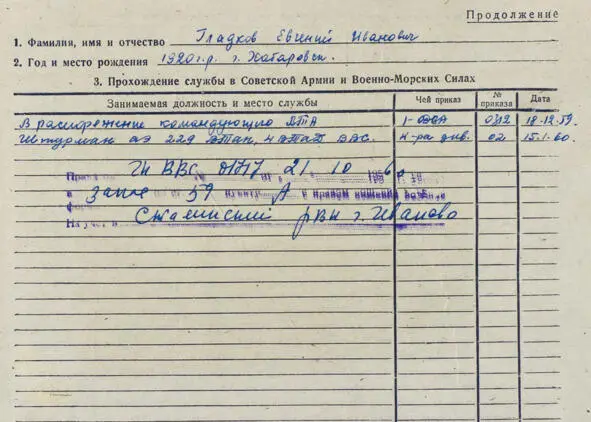 Продолжение
1. Фамилия, имя и отчество Гладков Евгений Иванович
2. Год и место рождения 1920 г.р. г. Хабаровск.
3. Прохождение службы в Советской Армии и Военно-Морских Силах
Занимаемая должность и место службы Чей приказ № приказа Дата
В распоряжение командующего ВТА 1-ОВА 0312 18.12.59.
Штурман аэ 229 ВТАП, 4 ВТАД ВВС. к-ра див. 02 15.1.60.
ГК ВВС 01717 21 10 60
в запас 59 пункту А с правом ношения
форм
На учет в РВК г. Иваново